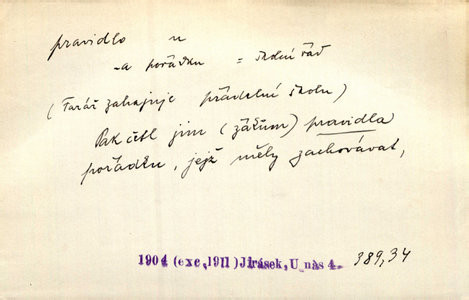 pravidlo n
-a pořádku = školní řád
(Farář zahajuje přádelní školu)
Pak četl jim (žákům) pravidla
pořádku, jejž měly zachovávat,
1904 (exc. 1911) Jirásek, U nás 4. 389,34